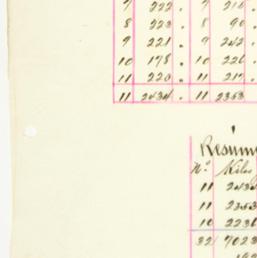 7 222. 7 216
8 223. 8 90
9 221. 9 242
10 178. 10 226
11 220. 11 217
11 2434. 11 2353
Resum
No. Kilos
11 243
11 2353
10 2236
32 7023